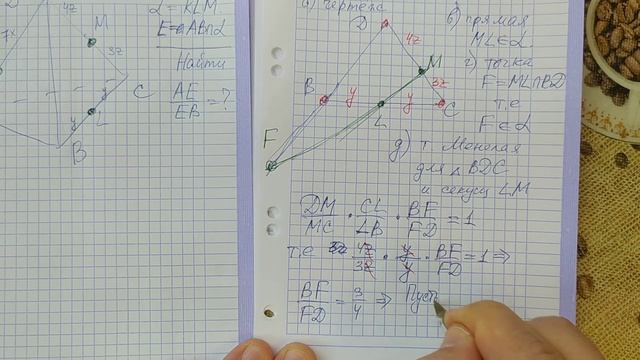 α = KLM
E = a AB∩α
Найти
AE/EB = ?
7x
4z
M
3z
C
y
L
y
B
чертеж
D
4z
M
3z
B
y
L
y
C
F
б) прямая
ML∈α.
г) точка
F=ML∩BD
т.е
F∈α
д) т Менелая
для △ BDC
и секущ LM
DM/MC · CL/LB · BF/FD = 1
т.е 4z/3z · y/y · BF/FD = 1 ⇒
BF/FD = 3/4 ⇒ Пусть